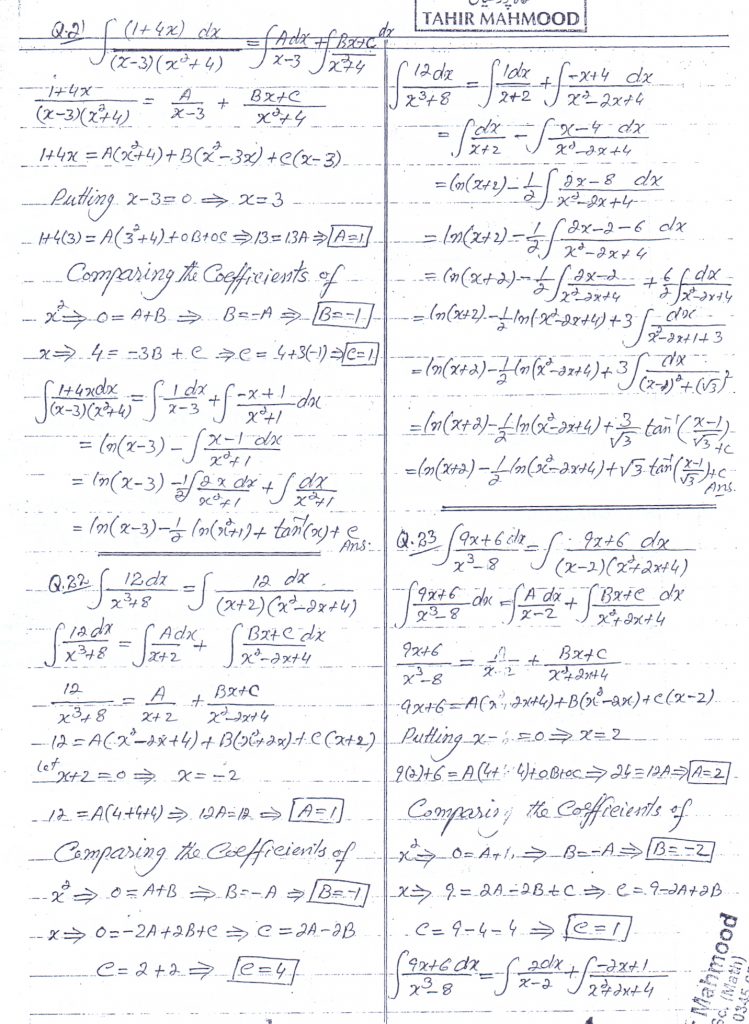 TAHIR MAHMOOD
Q.21 ∫ (1+4x) dx / (x-3)(x²+4) = ∫ A dx / x-3 + ∫ Bx+C / x²+4 dx
1+4x / (x-3)(x²+4) = A / x-3 + Bx+C / x²+4
1+4x = A(x²+4)+B(x²-3x)+C(x-3)
Putting x-3=0 ⇒ x=3
1+4(3)=A(3²+4)+0B+0C ⇒ 13=13A ⇒ A=1
Comparing the Coefficients of
x² ⇒ 0=A+B ⇒ B=-A ⇒ B=-1
x ⇒ 4 = -3B + C ⇒ C = 4+3(-1) ⇒ C=1
∫ 1+4x dx / (x-3)(x²+4) = ∫ 1 dx / x-3 + ∫ -x+1 / x²+1 dx
= ln(x-3) - ∫ x-1 dx / x²+1
= ln(x-3) - 1/2 ∫ 2x dx / x²+1 + ∫ dx / x²+1
= ln(x-3) - 1/2 ln(x²+1) + tan⁻¹(x) + c Ans.
Q.22 ∫ 12dx / x³+8 = ∫ 12 dx / (x+2)(x²-2x+4)
∫ 12dx / x³+8 = ∫ A dx / x+2 + ∫ Bx+C dx / x²-2x+4
12 / x³+8 = A / x+2 + Bx+C / x²-2x+4
12 = A(x²-2x+4)+B(x²+2x)+C(x+2)
let x+2=0 ⇒ x=-2
12 = A(4+4+4) ⇒ 12A=12 ⇒ A=1
Comparing the Coefficients of
x² ⇒ 0=A+B ⇒ B=-A ⇒ B=-1
x ⇒ 0=-2A+2B+C ⇒ C=2A-2B
C=2+2 ⇒ C=4
∫ 12dx / x³+8 = ∫ 1dx / x+2 + ∫ -x+4 dx / x²-2x+4
= ∫ dx / x+2 - ∫ x-4 dx / x²-2x+4
= ln(x+2) - 1/2 ∫ 2x-8 dx / x²-2x+4
= ln(x+2) - 1/2 ∫ 2x-2-6 dx / x²-2x+4
= ln(x+2) - 1/2 ∫ 2x-2 / x²-2x+4 + 6/2 ∫ dx / x²-2x+4
= ln(x+2) - 1/2 ln(x²-2x+4) + 3 ∫ dx / x²-2x+1+3
= ln(x+2) - 1/2 ln(x²-2x+4) + 3 ∫ dx / (x-1)²+(√3)²
= ln(x+2) - 1/2 ln(x²-2x+4) + 3/√3 tan⁻¹(x-1/√3)+c
= ln(x+2) - 1/2 ln(x²-2x+4) + √3 tan⁻¹(x-1/√3)+c Ans.
Q.23 ∫ 9x+6 dx / x³-8 = ∫ 9x+6 dx / (x-2)(x²+2x+4)
∫ 9x+6 / x³-8 dx = ∫ A dx / x-2 + ∫ Bx+C dx / x²+2x+4
9x+6 / x³-8 = A / x-2 + Bx+C / x²+2x+4
9x+6 = A(x² 2x+4)+B(x²-2x)+C(x-2)
Putting x- =0 ⇒ x=2
9(2)+6 = A(4+ 4)+0B+0C ⇒ 24=12A ⇒ A=2
Comparing the Coefficients of
x² ⇒ 0=A+ ⇒ B=-A ⇒ B=-2
x ⇒ 9=2A-2B+C ⇒ C=9-2A+2B
C=9-4-4 ⇒ C=1
∫ 9x+6 dx / x³-8 = ∫ 2dx / x-2 + ∫ -2x+1 / x²+2x+4
Mahmood
Sc. (Math)